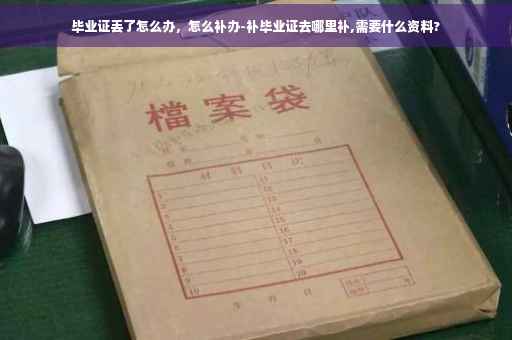 毕业证丢了怎么办，怎么补办-补毕业证去哪里补,需要什么资料?
檔案袋
材料目次
1 11
2 12
3 13
4 14
5 15
6 16
7 17
8 18
9 19
10 20
年 月 日